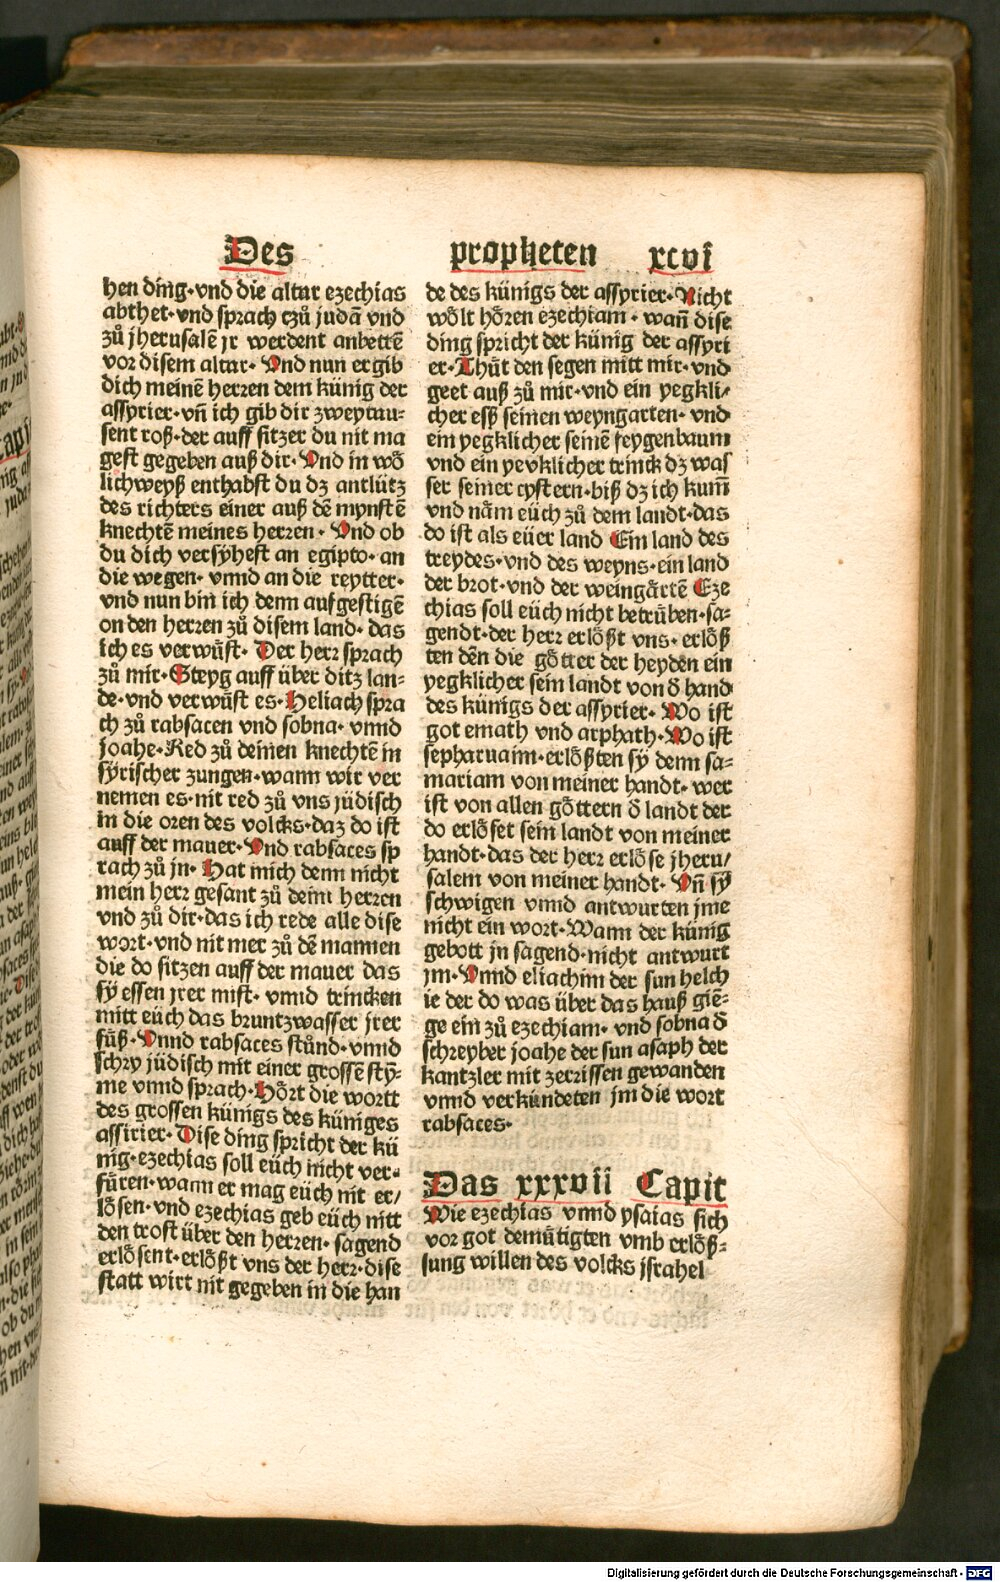 Des propheten xcvi
hen ding·vnd die altar ezechias
abthet·vnd sprach czů judā vnd
zů jherusalē jr werdent anbettē
vor disem altar· Vnd nun ergib
dich meinē herren dem künig der
assyrier·vñ ich gib dir zweytau-
sent roß·der auff sitzer du nit ma
gest gegeben auß dir· Vnd in wö
lichweyß enthabst du dz antlütz
des richters einer auß dē mynstē
knechtē meines herren· Vnd ob
du dich versyhest an egipto·an
die wegen· vnnd an die reytter·
vnd nun bin ich denn aufgestigē
on den herren zů disem land· das
ich es verwüst· Der herr sprach
zů mir·Steyg auff über ditz lan-
de·vnd verwüst es·Heliach spra
ch zů rabsacen vnd sobna· vnnd
joahe·Red zů deinen knechtē in
syrischer zungen·wann wir ver
nemen es·nit red zů vns jüdisch
in die oren des volcks·daz do ist
auff der mauer·Vnd rabsaces sp
rach zů jn· Hat mich denn nicht
mein herr gesant zů deim herren
vnd zů dir·das ich rede alle dise
wort·vnd nit mer zů dē mannen
die do sitzen auff der mauer das
sy essen jrer mist· vnnd trincken
mitt euch das bruntzwasser jrer
füß·Vnnd rabsaces stůnd·vnnd
schry jüdisch mit einer grossē sty-
me vnnd sprach·Hört die wortt
des grossen künigs des küniges
assirier· Dise ding spricht der kü
nig·ezechias soll euch nicht ver-
füren·wann er mag euch nit er/
lösen·vnd ezechias geb euch nitt
den trost über den herren· sagend
erlösent·erlößt vns der herr·dise
statt wirt nit gegeben in die han
de des künigs der assyrier·Nicht
wölt hören ezechiam· wañ dise
ding spricht der künig der assyri
er·Thüt den segen mitt mir·vnd
geet auß zů mir·vnd ein yegkli/
cher esß seinen weyngarten· vnd
ein yegklicher seinē feygenbaum
vnd ein yevklicher trinck dz was
ser seiner cystern·biß dz ich kum̄
vnd näm eüch zů dem landt·das
do ist als eüer land Ein land des
treydes·vnd des weyns·ein land
der brot·vnd der weingärtē Eze
chias soll eüch nicht betrüben·sa-
gendt·der herr erlößt vns·erlöß
ten den die götter der heyden ein
yegklicher sein landt von d̄ hand
des künigs der assyrier· Wo ist
got emath vnd arphath·Wo ist
sepharuaim·erlößten sy denn sa-
mariam von meiner handt· wer
ist von allen göttern d̄ landt der
do erlöset sein landt von meiner
handt·das der herr erlöse jheru/
salem von meiner handt· Vñ sy
schwigen vnnd antwurten jme
nicht ein wort·Wann der künig
gebott jn sagend·nicht antwurt
jm·Vnnd eliachim der sun helch
ie der do was über das hauß gie-
ge ein zů ezechiam· vnd sobna d̄
schreyber joahe der sun asaph der
kantzler mit zerrissen gewanden
vnnd verkündeten jm die wort
rabsaces·
Das xxxvii Capit
Wie ezechias vnnd ysaias sich
vor got demütigten vmb erlöß-
sung willen des volcks jsrahel
Digitalisierung gefördert durch die Deutsche Forschungsgemeinschaft - DFG